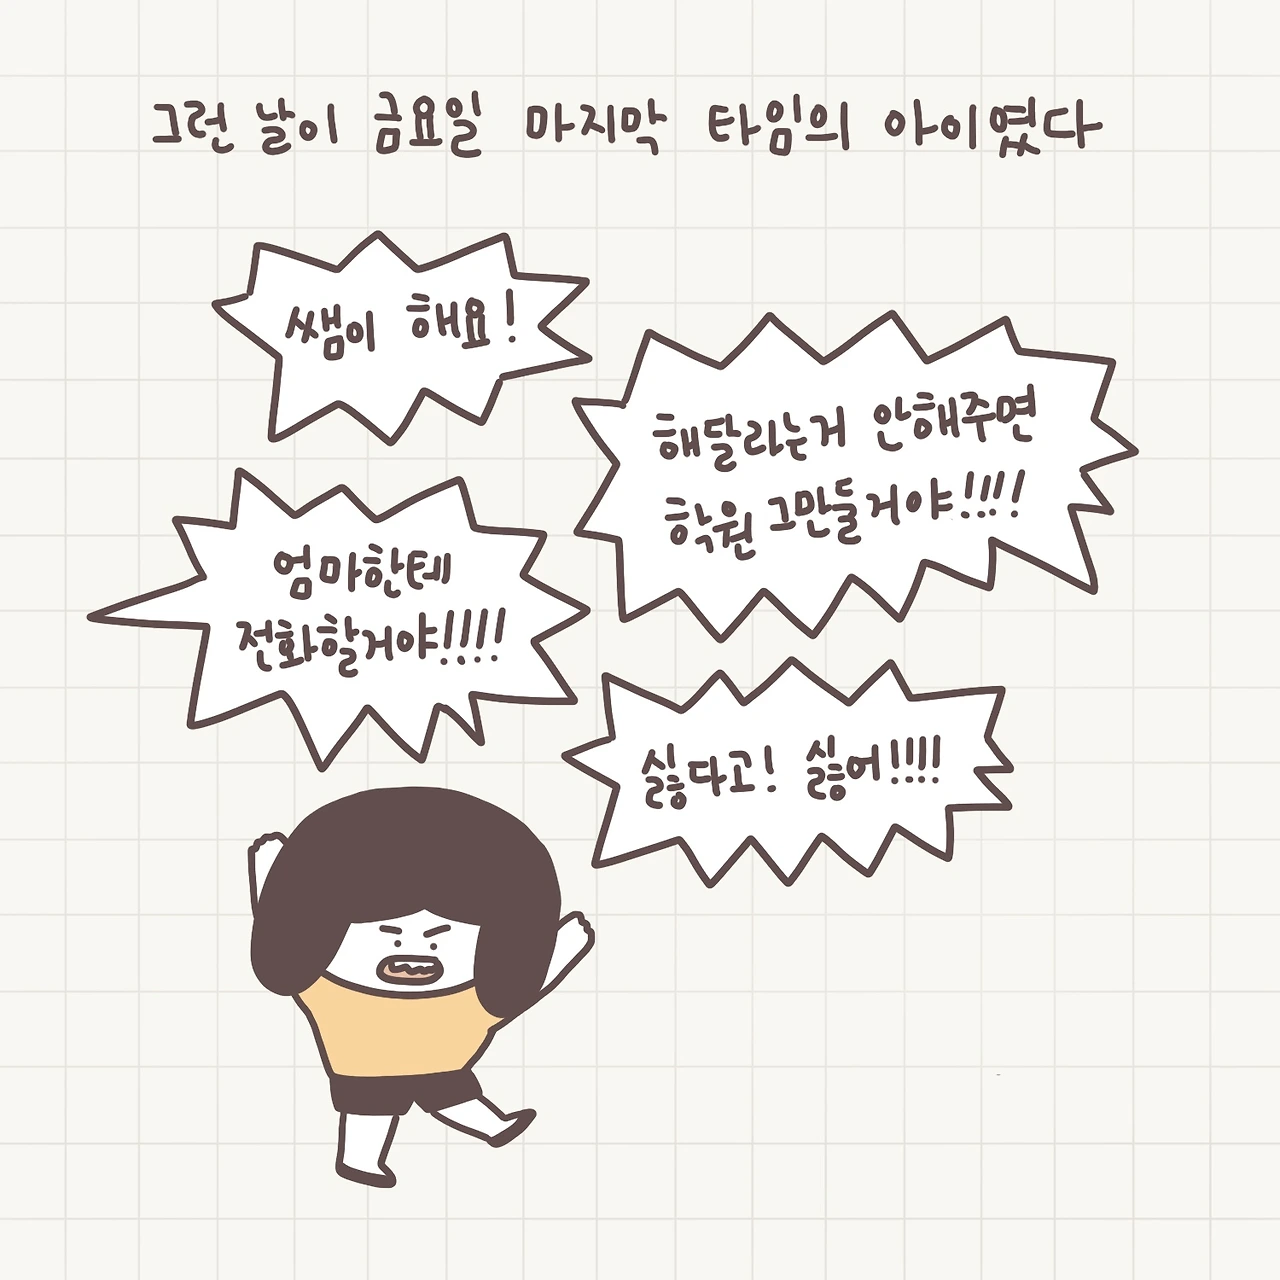 그런 날이 금요일 마지막 타임의 아이였다
쌤이 해요!
해달라는거 안해주면
학원 그만둘거야!!!!
엄마한테
전화할거야!!!!
싫다고! 싫어!!!!